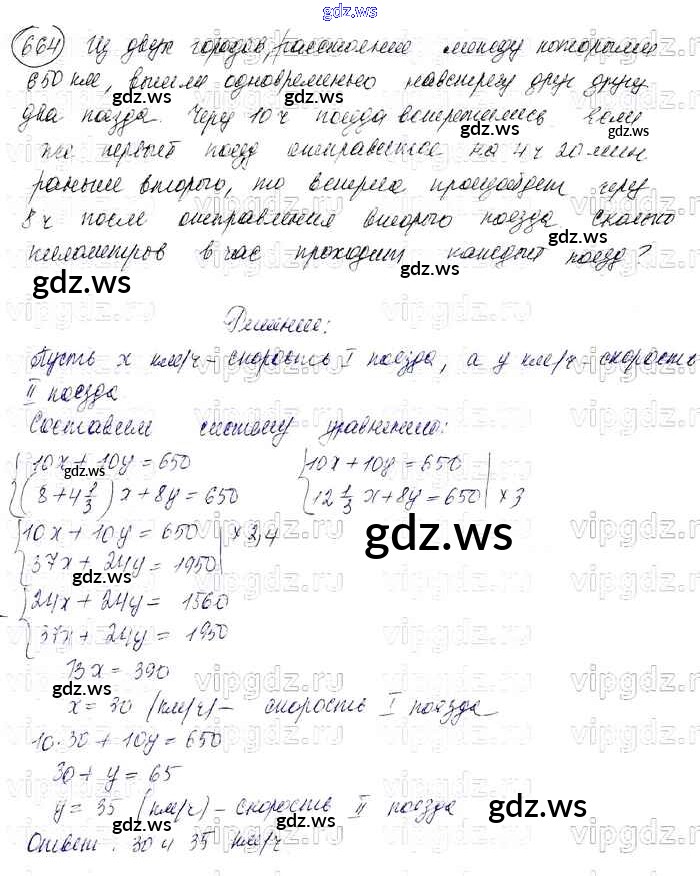 gdz.ws
664 Из двух городов, расстояние между которыми
650 км, вышли одновременно навстречу друг другу
gdz.ws
два поезда. Через 10 ч поезда встретились. Если
gdz.ws
то первый поезд отправится на 4 ч 20 мин
раньше второго, то встреча произойдет через
8 ч после отправления второго поезда. Сколько
километров в час проходит каждый поезд?
gdz.ws gdz.ws
Решение:
Пусть x км/ч - скорость I поезда, а y км/ч - скорость
II поезда
Составим систему уравнению:
10x + 10y = 650 10x + 10y = 650
gdz.ws
(8 + 4 1/3) x + 8y = 650 12 1/3 x + 8y = 650 | × 3
10x + 10y = 650 | × 2,4
gdz.ws
37x + 24y = 1950
gdz.ws
24x + 24y = 1560
37x + 24y = 1950
13x = 390
gdz.ws
x = 30 (км/ч) - скорость I поезда
10·30 + 10y = 650
30 + y = 65
y = 35 (км/ч) - скорость II поезда
gdz.ws
gdz.ws gdz.ws
Ответ: 30 и 35 км/ч